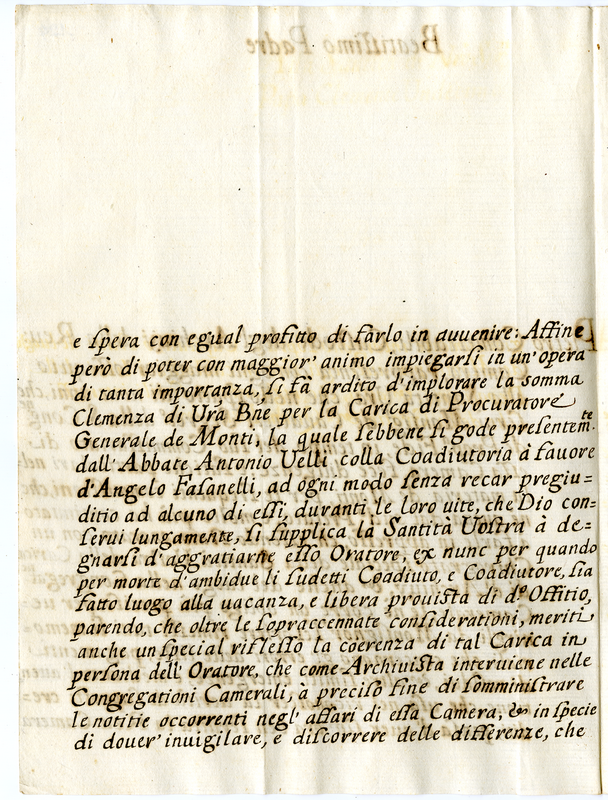 Beatissimo Padre
e spera con egual profitto di farlo in auuenire: Affine
però di poter con maggior' animo impiegarsi in un'opera
di tanta importanza, si fà ardito d'implorare la somma
Clemenza di Vra Bne per la Carica di Procuratore
Generale de Monti, la quale sebbene si gode presentemte.
dall'Abbate Antonio Uelli colla Coadiutoria à fauore
d'Angelo Fasanelli, ad ogni modo senza recar pregiu=
ditio ad alcuno di essi, duranti le loro uite, che Dio con=
serui lungamente, si supplica la Santità Vostra à de=
gnarsi d'aggratiarne esso Oratore, ex nunc per quando
per morte d'ambidue li sudetti Coadiuto, e Coadiutore, sia
fatto luogo alla uacanza, e libera prouista di do. Offitio,
parendo, che oltre le sopraccennate considerationi, meriti
anche un special riflesso la coerenza di tal Carica in
persona dell'Oratore, che come Archiuista interuiene nelle
Congregationi Camerali, à preciso fine di somministrare
le notitie occorrenti negl' affari di essa Camera, & in specie
di douer' inuigilare, e discorrere delle differenze, che